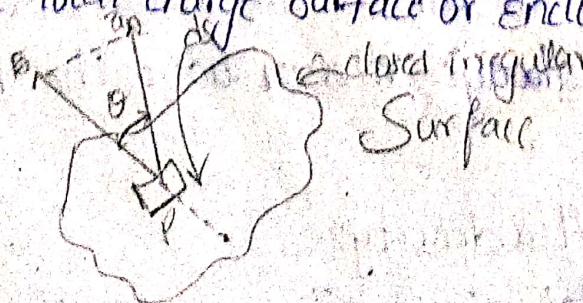 total charge surface or Encl
ds
closed irregular
Surface
θ
P